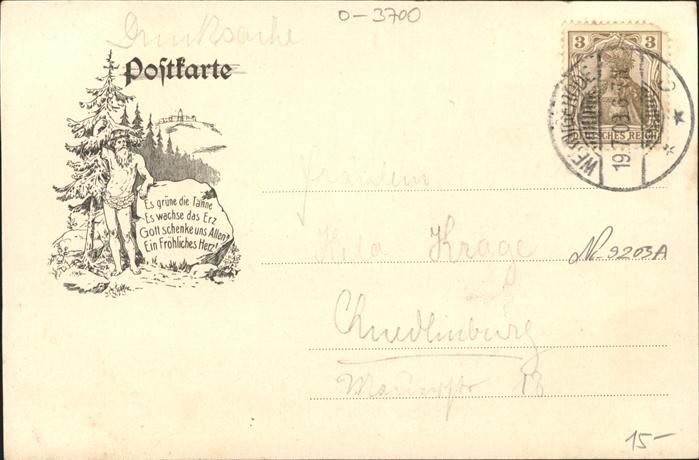 D-3700
Drucksache
Postkarte
3 3
DEUTSCHES REICH
WERNIGERODE
19.7.03.6-7N
Es grüne die Tanne
Es wachse das Erz
Gott schenke uns Allen
Ein Fröhliches Herz!
Fräulein
Krage
Nr. 9203A
Quedlinburg
18
15-